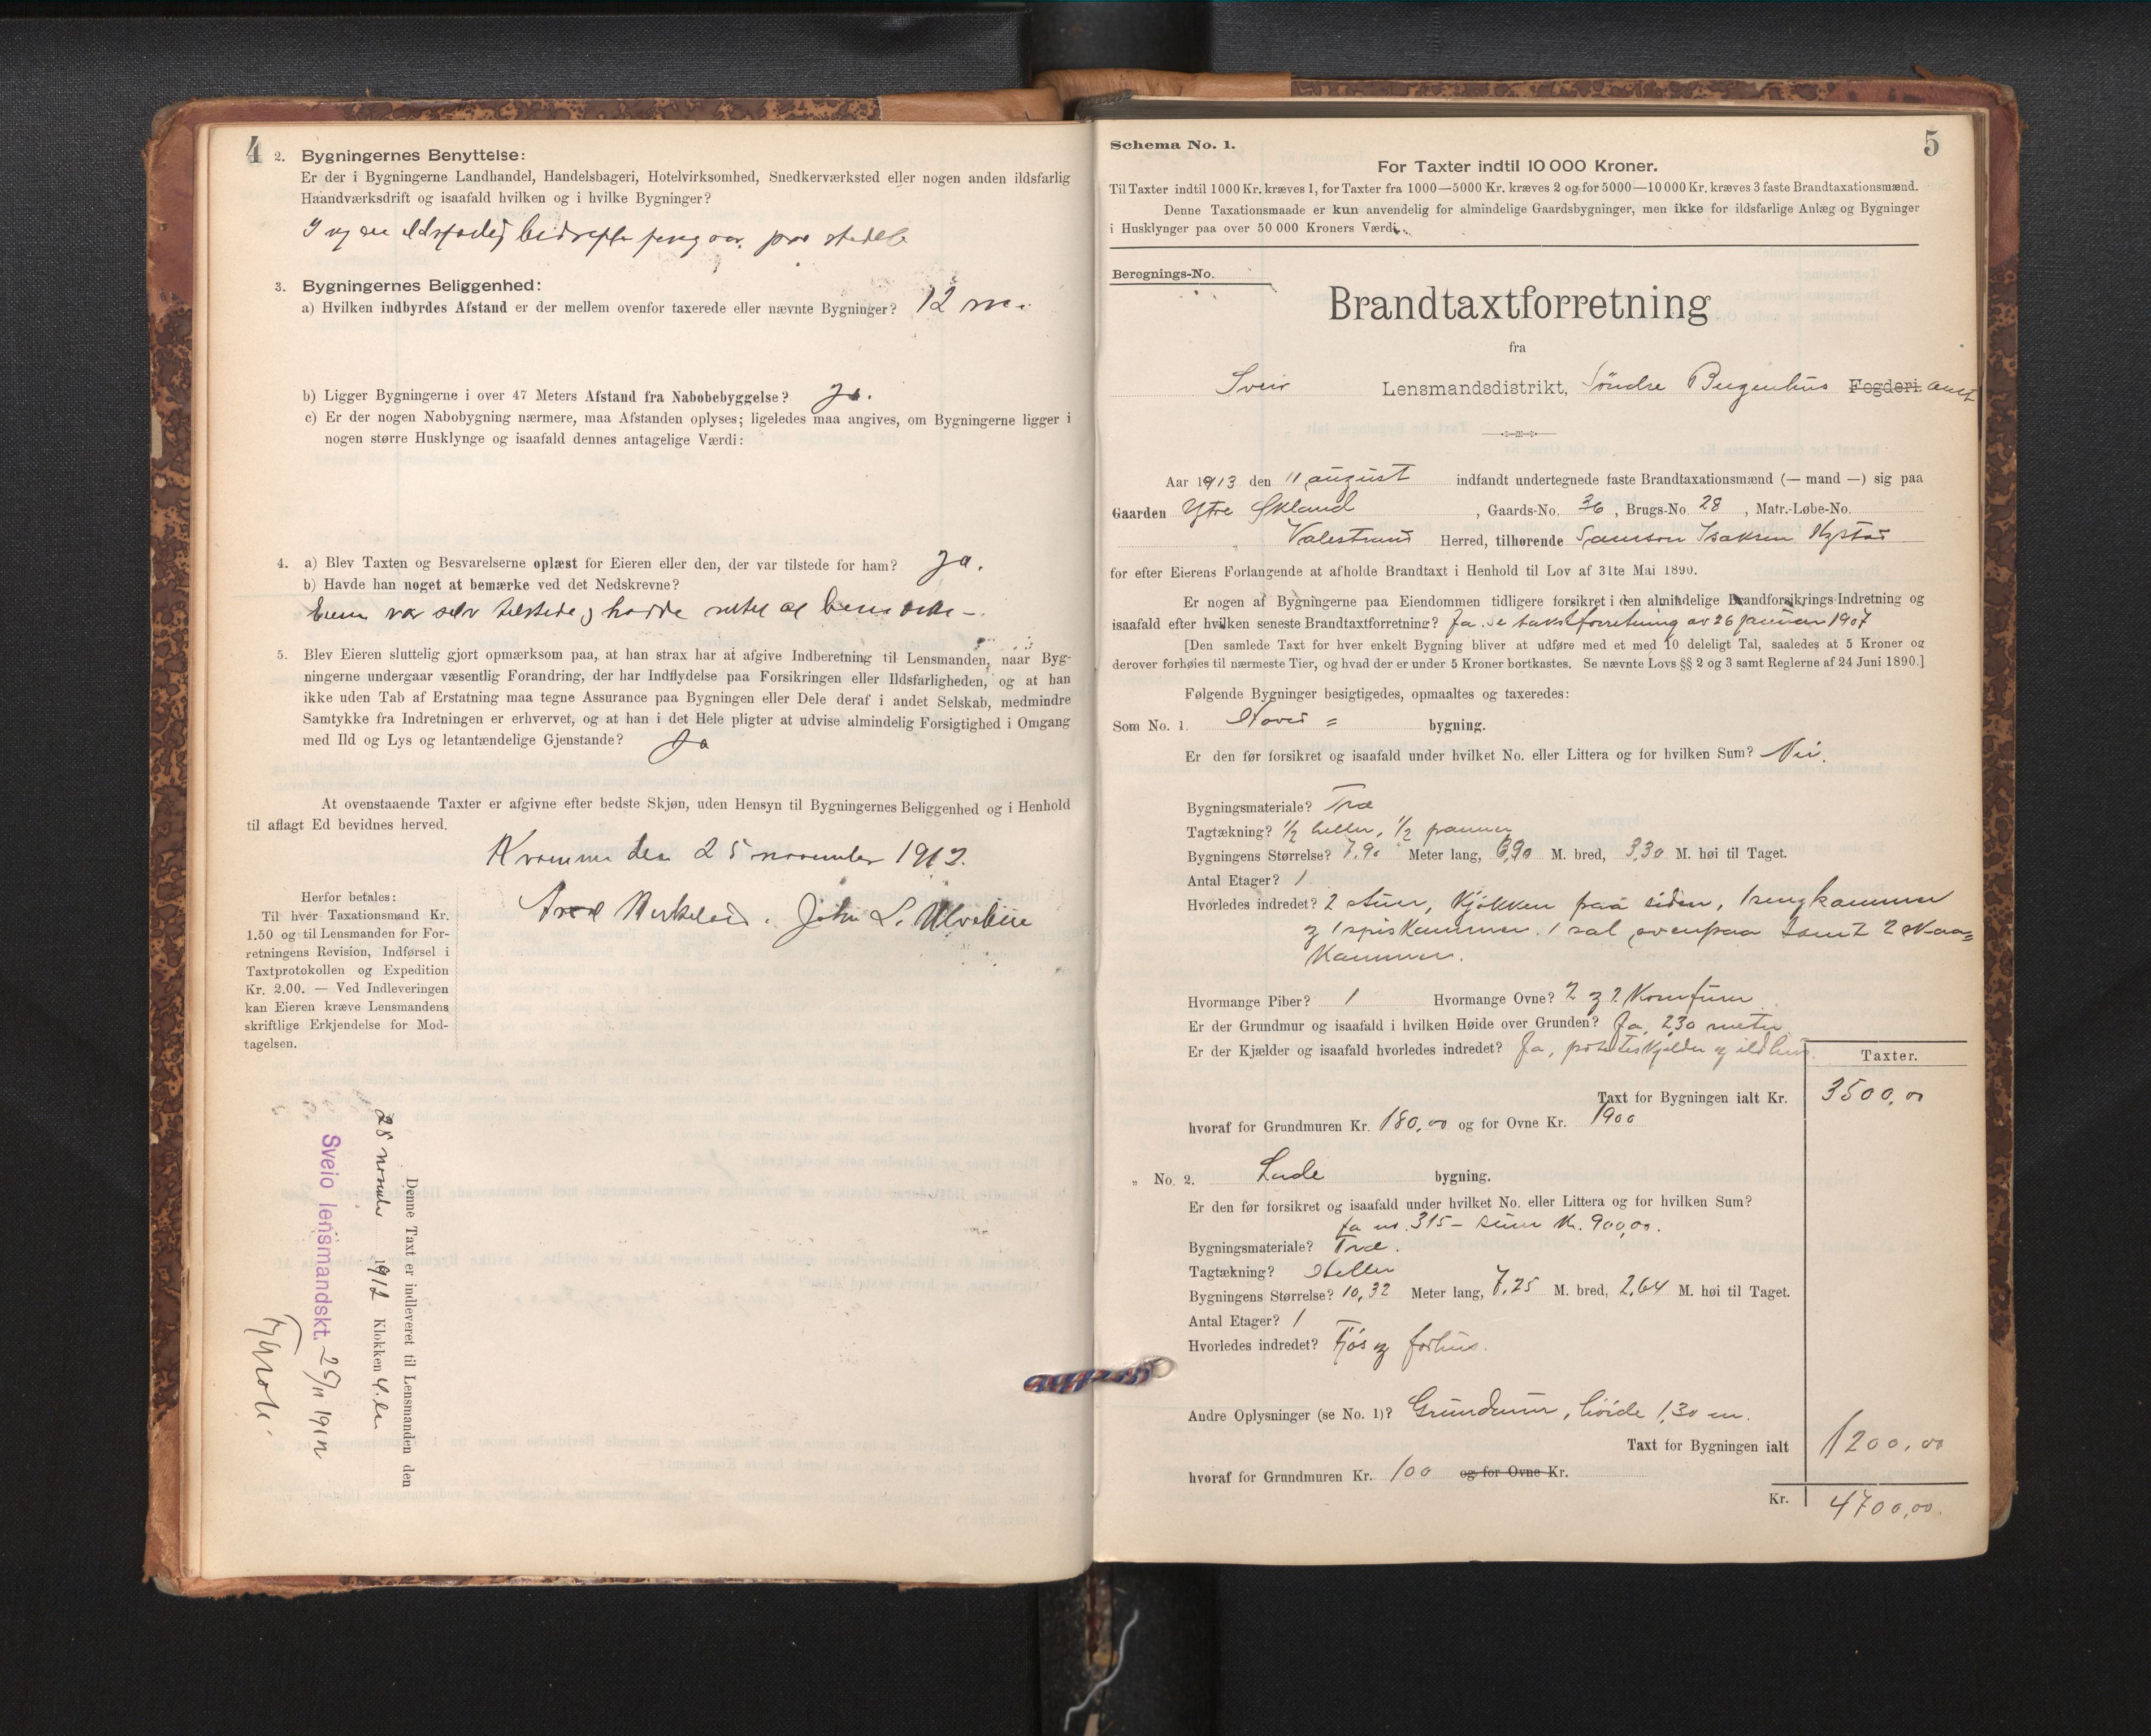 4
2. Bygningernes Benyttelse:
Er der i Bygningerne Landhandel, Handelsbageri, Hotelvirksomhed, Snedkerværksted eller nogen anden ildsfarlig
Haandværksdrift og isaafald hvilken og i hvilke Bygninger?
Ingen ildsfarlig bedrift paa stedet
3. Bygningernes Beliggenhed:
a) Hvilken indbyrdes Afstand er der mellem ovenfor taxerede eller nævnte Bygninger? 12 m.
b) Ligger Bygningerne i over 47 Meters Afstand fra Nabobebyggelse? Ja.
c) Er der nogen Nabobygning nærmere, maa Afstanden oplyses; ligeledes maa angives, om Bygningerne ligger i
nogen større Husklynge og isaafald dennes antagelige Værdi:
4. a) Blev Taxten og Besvarelserne oplæst for Eieren eller den, der var tilstede for ham? Ja.
b) Havde han noget at bemærke ved det Nedskrevne?
Eieren var selv tilstede, hadde intet at bemerke –
5. Blev Eieren sluttelig gjort opmærksom paa, at han strax har at afgive Indberetning til Lensmanden, naar Byg-
ningerne undergaar væsentlig Forandring, der har Indflydelse paa Forsikringen eller Ildsfarligheden, og at han
ikke uden Tab af Erstatning maa tegne Assurance paa Bygningen eller Dele deraf i andet Selskab, medmindre
Samtykke fra Indretningen er erhvervet, og at han i det Hele pligter at udvise almindelig Forsigtighed i Omgang
med Ild og Lys og letantændelige Gjenstande? Ja
At ovenstaaende Taxter er afgivne efter bedste Skjøn, uden Hensyn til Bygningernes Beliggenhed og i Henhold
til aflagt Ed bevidnes herved.
den 25 november 1912.
John L.
Herfor betales:
Til hver Taxationsmand Kr.
1.50 og til Lensmanden for For-
retningens Revision, Indførsel i
Taxtprotokollen og Expedition
Kr. 2.00. — Ved Indleveringen
kan Eieren kræve Lensmandens
skriftlige Erkjendelse for Mod-
tagelsen.
Denne Taxt er indleveret til Lensmanden den
28 november 1912 Klokken 4.
Sveio lensmandskt. 1912
5
Schema No. 1.
For Taxter indtil 10 000 Kroner.
Til Taxter indtil 1000 Kr. kræves 1, for Taxter fra 1000—5000 Kr. kræves 2 og for 5000—10 000 Kr. kræves 3 faste Brandtaxationsmænd.
Denne Taxationsmaade er kun anvendelig for almindelige Gaardsbygninger, men ikke for ildsfarlige Anlæg og Bygninger
i Husklynger paa over 50 000 Kroners Værdi.
Beregnings-No.
Brandtaxtforretning
fra
Sveio Lensmandsdistrikt, Søndre Bergenhus Fogderi amt
Aar 1913 den 11 august indfandt undertegnede faste Brandtaxationsmænd (— mand —) sig paa
Gaarden Ytre Økland, Gaards-No. 36, Brugs-No. 28, Matr.-Løbe-No.
Valestrand Herred, tilhørende Samson Isaksen
for efter Eierens Forlangende at afholde Brandtaxt i Henhold til Lov af 31te Mai 1890.
Er nogen af Bygningerne paa Eiendommen tidligere forsikret i den almindelige Brandforsikrings-Indretning og
isaafald efter hvilken seneste Brandtaxtforretning? Ja. Se takstforretning av 26 januar 1907
[Den samlede Taxt for hver enkelt Bygning bliver at udføre med et med 10 deleligt Tal, saaledes at 5 Kroner og
derover forhøies til nærmeste Tier, og hvad der er under 5 Kroner bortkastes. Se nævnte Lovs §§ 2 og 3 samt Reglerne af 24 Juni 1890.]
Følgende Bygninger besigtigedes, opmaaltes og taxeredes:
Som No. 1. Hoved = bygning.
Er den før forsikret og isaafald under hvilket No. eller Littera og for hvilken Sum? Nei.
Bygningsmateriale? Træ
Tagtækning? 1/2 heller, 1/2 panner
Bygningens Størrelse? 7,90 Meter lang, 6,90 M. bred, 3,30 M. høi til Taget.
Antal Etager? 1
Hvorledes indredet? 2 stuer, kjøkken paa siden, 1 sengkammer
og 1 spiskammer. 1 sal ovenpaa samt 2 skaa=
kammer.
Hvormange Piber? 1 Hvormange Ovne? 2 og 2 komfurer
Er der Grundmur og isaafald i hvilken Høide over Grunden? Ja, 2,30 meter
Er der Kjælder og isaafald hvorledes indredet? Ja, poteteskjelder og ildhus.
Taxter.
Taxt for Bygningen ialt Kr. 3500,00
hvoraf for Grundmuren Kr. 180,00 og for Ovne Kr. 1900
„ No. 2. Lade bygning.
Er den før forsikret og isaafald under hvilket No. eller Littera og for hvilken Sum?
Ja no. 315 – sum kr. 900,00.
Bygningsmateriale? Træ.
Tagtækning? Heller
Bygningens Størrelse? 10,32 Meter lang, 7,25 M. bred, 2,64 M. høi til Taget.
Antal Etager? 1
Hvorledes indredet? Fjøs og forhus.
Andre Oplysninger (se No. 1)? Grundmur, høide 1,30 m.
Taxt for Bygningen ialt 1200,00
hvoraf for Grundmuren Kr. 100 og for Ovne Kr.
Kr. 4700,00.